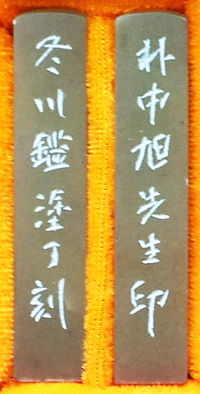 朴中旭先生印
冬川鑑塗丁刻